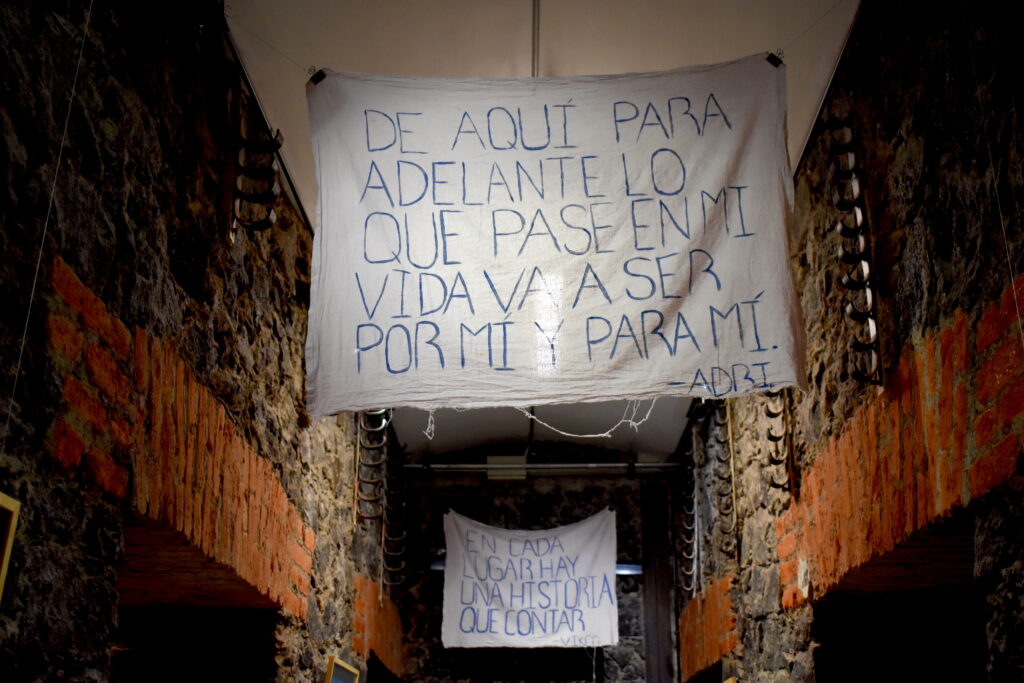 DE AQUÍ PARA
ADELANTE LO
QUE PASE EN MI
VIDA VA A SER
POR MÍ Y PARA MÍ.
-ADRI
EN CADA
LUGAR HAY
UNA HISTORIA
QUE CONTAR